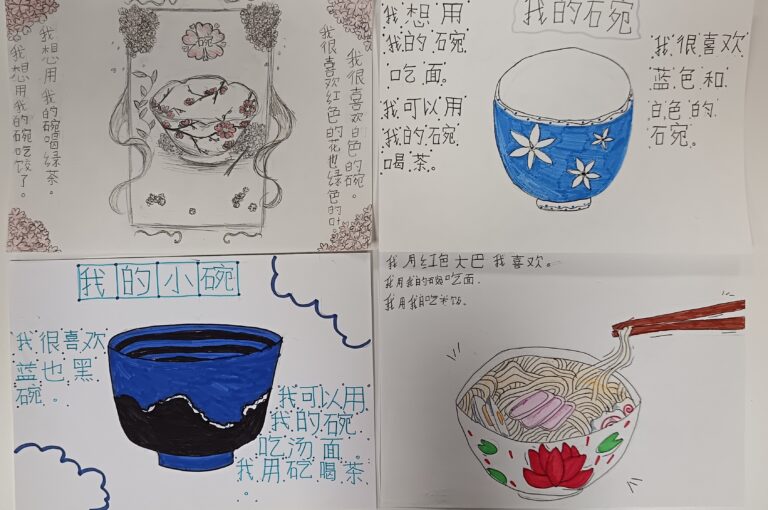 碗
我很喜欢白色的碗。
我很喜欢红色的花也绿色的叶。
我想用我的碗喝绿茶。
我想用我的碗吃饺了。
我的石宛
我想用
我的石宛
吃面。
我可以用
我的石宛
喝茶。
我很喜欢
蓝色和
白色的
石宛。
我的小碗
我很喜欢
蓝也黑
碗。
我可以用
我的碗
吃汤面。
我用碗喝茶
。
我用红包大巴我喜欢。
我用我的碗吃面.
我用我吃米饭.